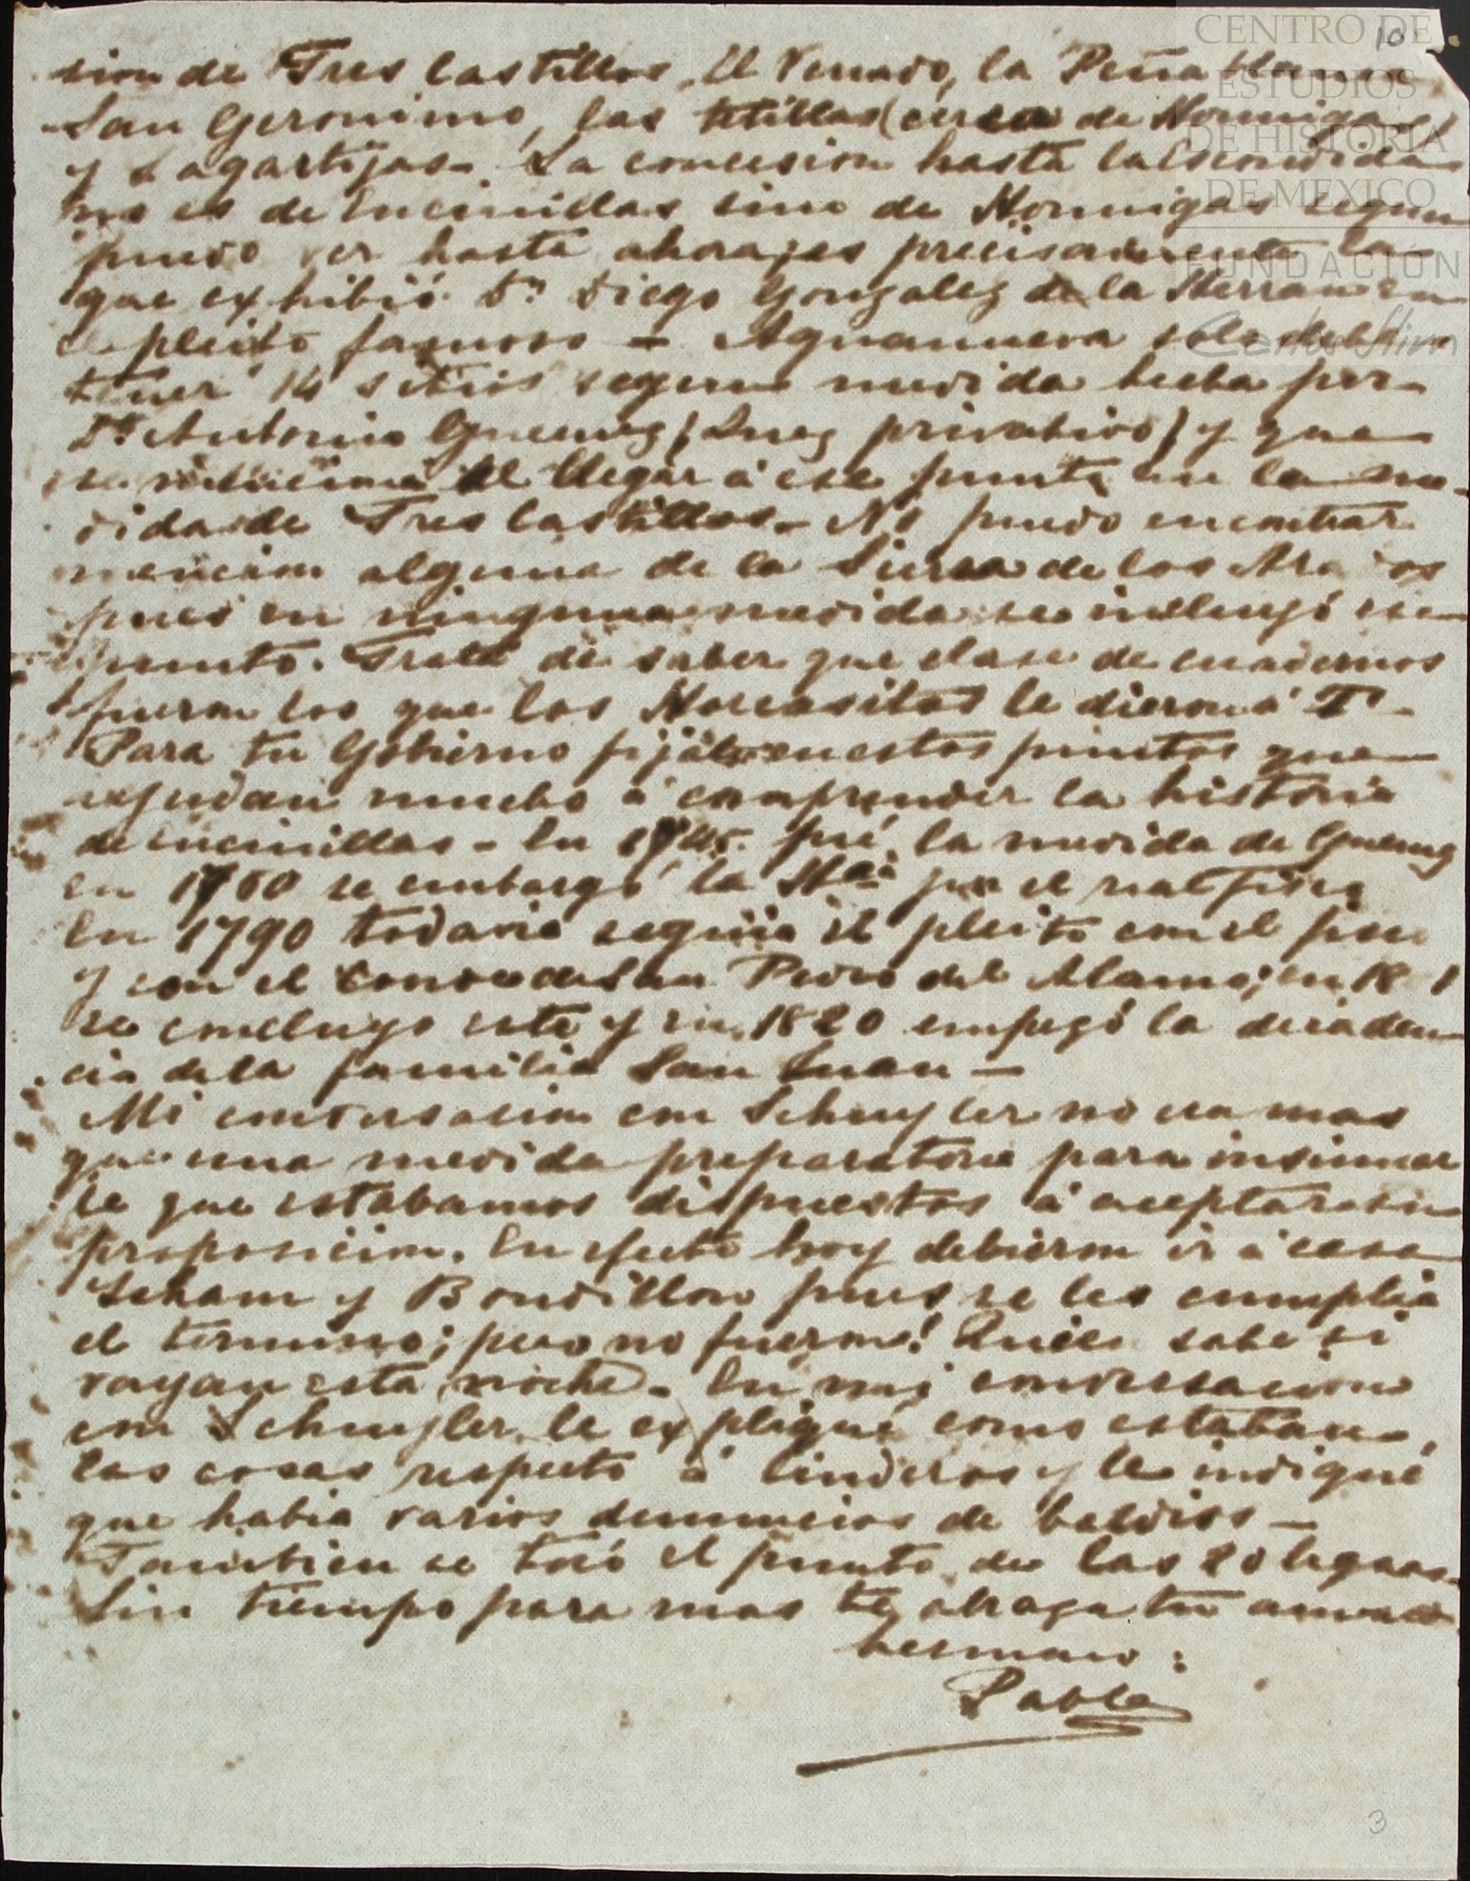 10
CENTRO DE
ESTUDIOS
DE HISTORIA
DE MEXICO
FUNDACIÓN
Carlos Slim
sion de Tres Castillos, El Venado, la Peña blanca
San Geronimo, las tetillas (cerca de Hormigas)
y Lagartijas. La concesion hasta la Escondida
no es de Encinillas sino de Hormigas segun
puedo ver hasta ahora, es precisamente la
que exhibió Dn Diego Gonzalez de la Herran en
el pleito famoso — Aguanueva solo debe
tener 14 sitios segun medida hecha por
Dn Antonio Guemez (Juez privativo) y que
se al llegar á ese punto en la me-
dida de Tres Castillos — No puedo encontrar
mencion alguna de la Sierra de los Arados
pues en ninguna medida se incluyó ese
punto. Trata de saber que clase de cuadernos
fueron los que los Horcasitas le dieron á T.
Para tu Gobierno fijate en estos puntos que
ayudan mucho á comprender la historia
de Encinillas — En 1745 fué la medida de Guemez
en 1760 se embargó la Hda por el real fisco
En 1790 todavia seguia el pleito con el fisco
y con el conde de San Pedro del Alamo; en 18 1
se concluyo este y en 1820 empezó la decaden-
cia de la familia San Juan —
Mi conversacion con Schuyler no era mas
que una medida preparatoria para insinuar
le que estabamos dispuestos á aceptar su
proposicion. En efecto hoy debieron ir á casa
Scham y Bourdillon pues se les cumplia
el termino; pero no fueron! Quien sabe si
vayan esta noche. En mi conversacion
con Schuyler le expliqué como estaban
las cosas respecto á linderos y le indiqué
que habia varios denuncios de baldios —
Tambien se tocó el punto de las 20 leguas
Sin tiempo para mas te abraza tu amado
hermano:
Pablo
3